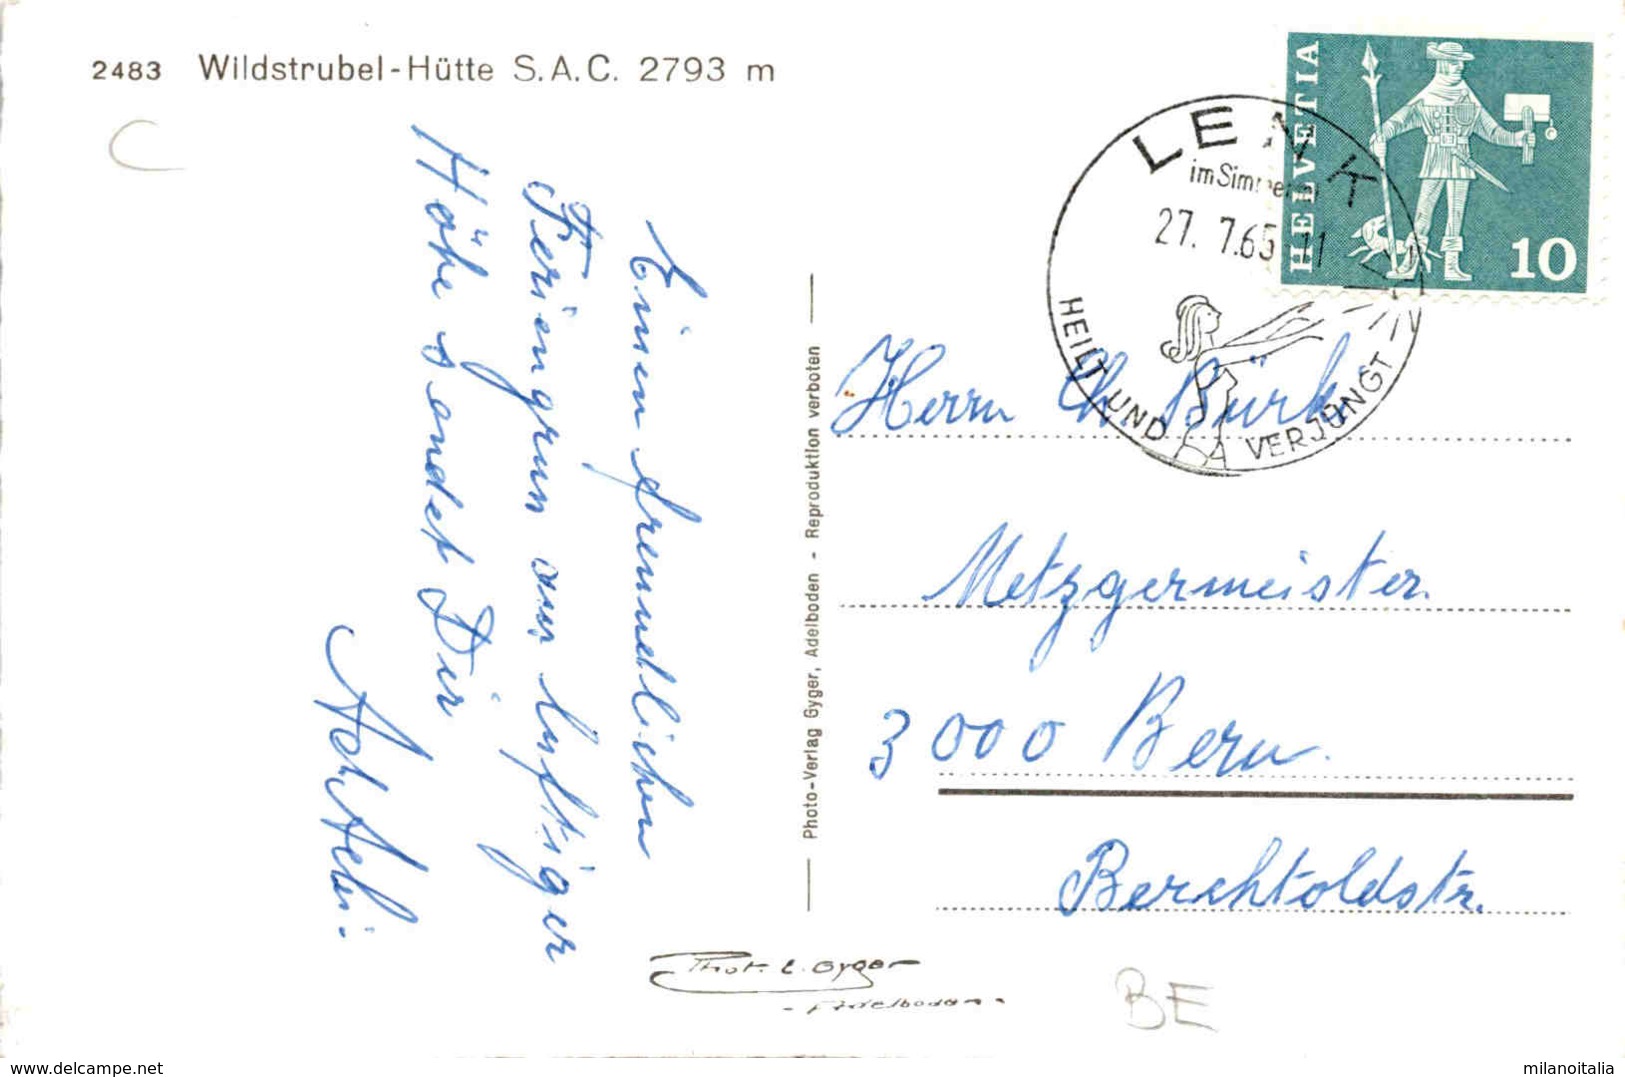 2483 Wildstrubel-Hütte S.A.C. 2793 m
Einen freundlichen
Feriengruss aus luftiger
Höhe sendet Dir
HELVETIA
10
LENK
im Simmental
27. 7.65 - 11
HEILT UND VERJÜNGT
Herrn Ch. Bürki
Metzgermeister.
3000 Bern.
Berchtoldstr.
Photo-Verlag Gyger, Adelboden - Reproduktion verboten
Phot. E. Gyger
- Adelboden -
BE
www.delcampe.net
milanoitalia